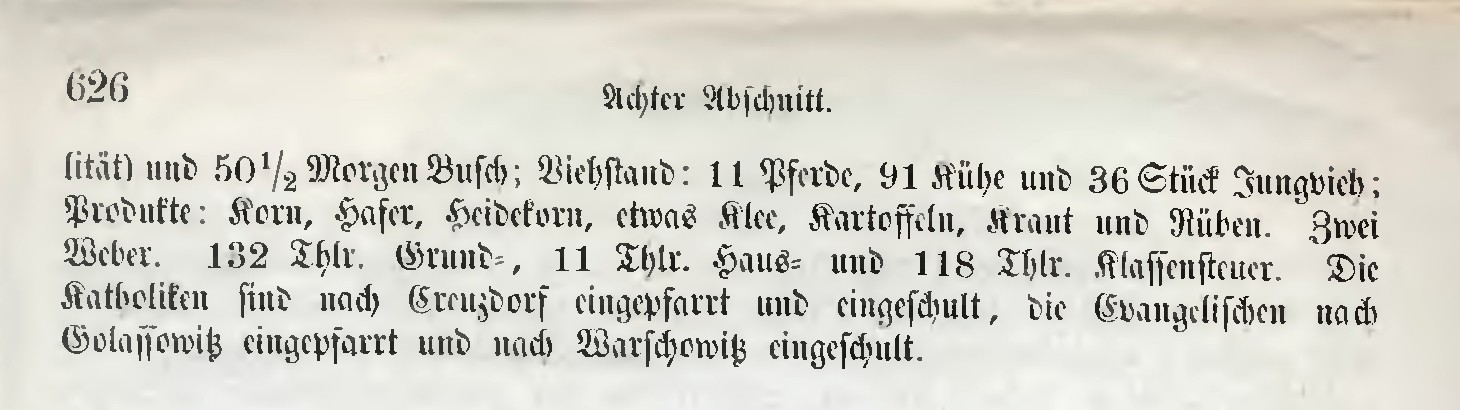 626
Achter Abschnitt.
lität) und 50 1/2 Morgen Busch; Viehstand: 11 Pferde, 91 Kühe und 36 Stück Jungvieh;
Produkte: Korn, Hafer, Heidekorn, etwas Klee, Kartoffeln, Kraut und Rüben. Zwei
Weber. 132 Thlr. Grund-, 11 Thlr. Haus- und 118 Thlr. Klassensteuer. Die
Katholiken sind nach Creuzdorf eingepfarrt und eingeschult, die Evangelischen nach
Golassowitz eingepfarrt und nach Warschowitz eingeschult.